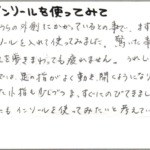 インソールを使ってみて
うちの外側にかかっているとの事で、まず
ソールを入れて使ってみました。驚いた事
を歩きまわっても疲れません。うれし
では、足の指がよく動き、開くようになり
た小指も少しづつ、まっすぐにのびてきまし
にもインソールを使ってみたいと考えてい